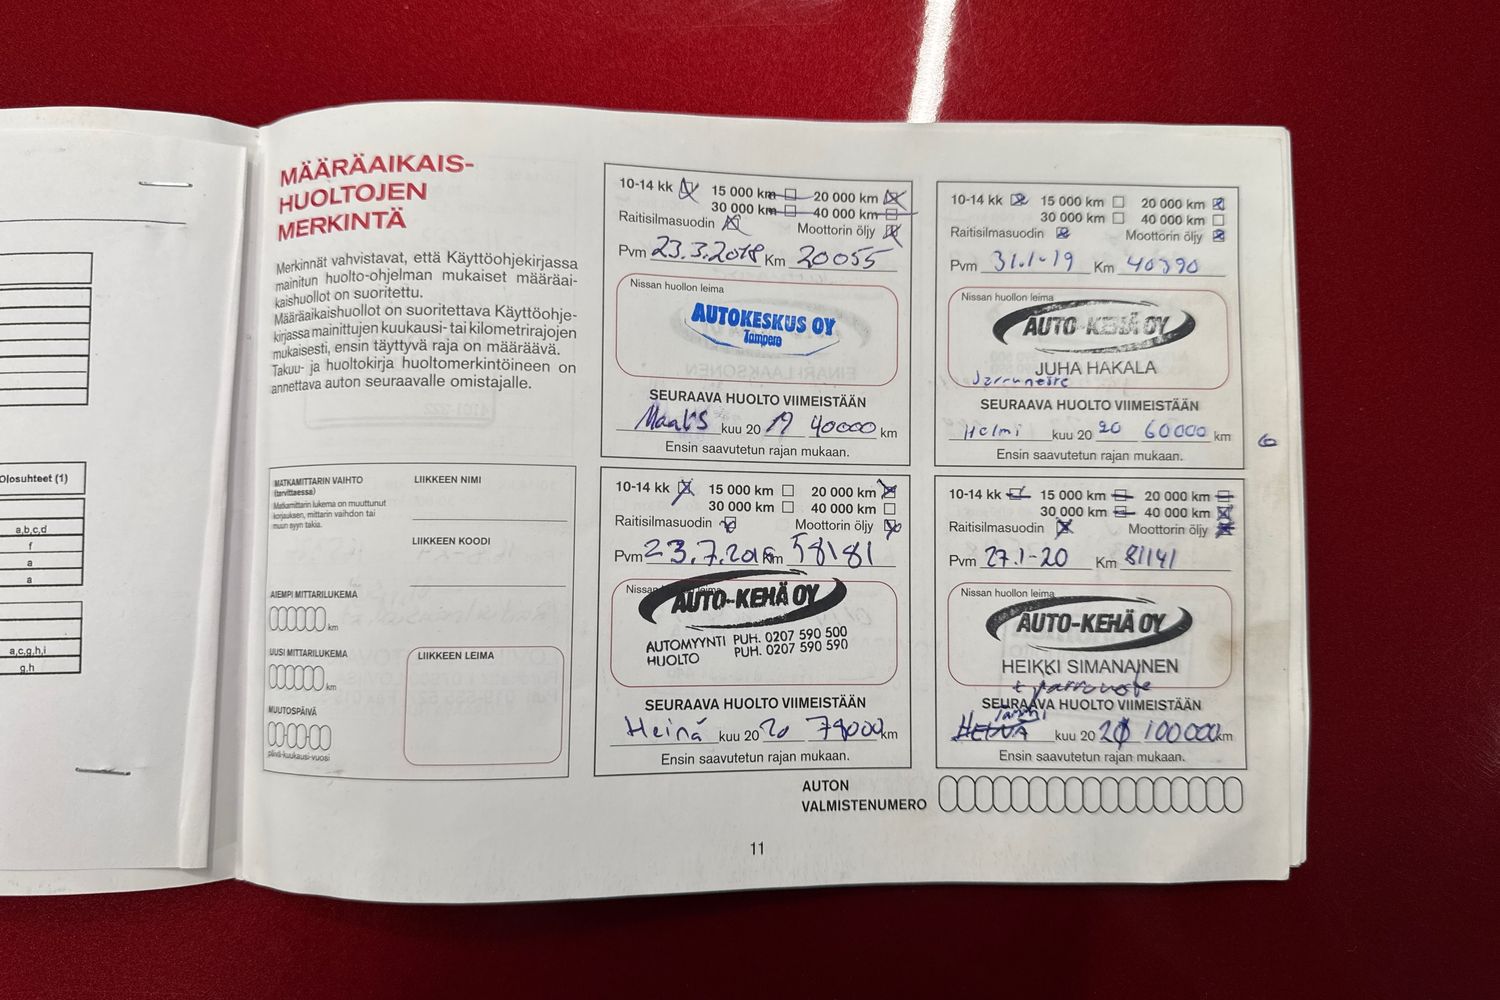 MÄÄRÄAIKAIS-
HUOLTOJEN
MERKINTÄ
Merkinnät vahvistavat, että Käyttöohjekirjassa
mainitun huolto-ohjelman mukaiset määräai-
kaishuollot on suoritettu.
Määräaikaishuollot on suoritettava Käyttöohje-
kirjassa mainittujen kuukausi- tai kilometrirajojen
mukaisesti, ensin täyttyvä raja on määräävä.
Takuu- ja huoltokirja huoltomerkintöineen on
annettava auton seuraavalle omistajalle.
MATKAMITTARIN VAIHTO
(tarvittaessa)
Matkamittarin lukema on muuttunut
korjauksen, mittarin vaihdon tai
muun syyn takia.
AIEMPI MITTARILUKEMA
km
UUSI MITTARILUKEMA
km
MUUTOSPÄIVÄ
päivä-kuukausi-vuosi
LIIKKEEN NIMI
LIIKKEEN KOODI
LIIKKEEN LEIMA
10-14 kk 15 000 km 20 000 km
30 000 km 40 000 km
Raitisilmasuodin Moottorin öljy
Pvm 23.3.2018 Km 20055
Nissan huollon leima
AUTOKESKUS OY
Tampere
SEURAAVA HUOLTO VIIMEISTÄÄN
Maalis kuu 20 19 40000 km
Ensin saavutetun rajan mukaan.
10-14 kk 15 000 km 20 000 km
30 000 km 40 000 km
Raitisilmasuodin Moottorin öljy
Pvm 31.1-19 Km 40390
Nissan huollon leima
AUTO-KEHÄ OY
JUHA HAKALA
Jarruneste
SEURAAVA HUOLTO VIIMEISTÄÄN
Helmi kuu 20 20 60000 km
Ensin saavutetun rajan mukaan.
10-14 kk 15 000 km 20 000 km
30 000 km 40 000 km
Raitisilmasuodin Moottorin öljy
Pvm 23.7. Km 58181
Nissan
AUTO-KEHÄ OY
AUTOMYYNTI PUH. 0207 590 500
HUOLTO PUH. 0207 590 590
SEURAAVA HUOLTO VIIMEISTÄÄN
Heinä kuu 20 20 km
Ensin saavutetun rajan mukaan.
10-14 kk 15 000 km 20 000 km
30 000 km 40 000 km
Raitisilmasuodin Moottorin öljy
Pvm 27.1-20 Km 81141
Nissan huollon leima
AUTO-KEHÄ OY
HEIKKI SIMANAINEN
SEURAAVA HUOLTO VIIMEISTÄÄN
Tammi kuu 20 100000 km
Ensin saavutetun rajan mukaan.
AUTON
VALMISTENUMERO
11
Olosuhteet (1)
a,b,c,d
f
a
a
a,c,g,h,i
g,h